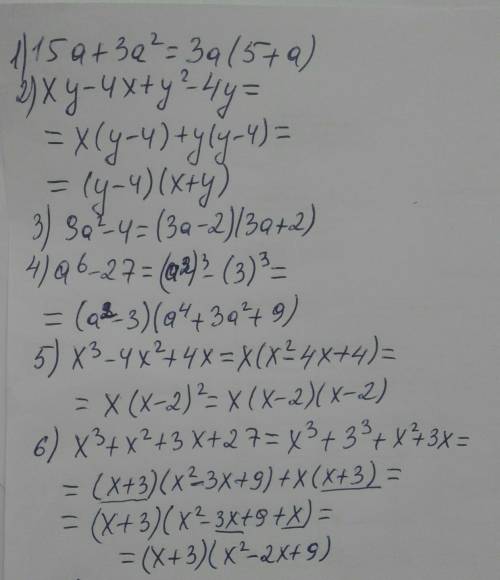 1) 15a+3a²=3a(5+a)
2) xy-4x+y²-4y=
=x(y-4)+y(y-4)=
=(y-4)(x+y)
3) 9a²-4=(3a-2)(3a+2)
4) a⁶-27=(a²)³-(3)³=
=(a²-3)(a⁴+3a²+9)
5) x³-4x²+4x=x(x²-4x+4)=
=x(x-2)²=x(x-2)(x-2)
6) x³+x²+3x+27=x³+3³+x²+3x=
=(x+3)(x²-3x+9)+x(x+3)=
=(x+3)(x²-3x+9+x)=
=(x+3)(x²-2x+9)